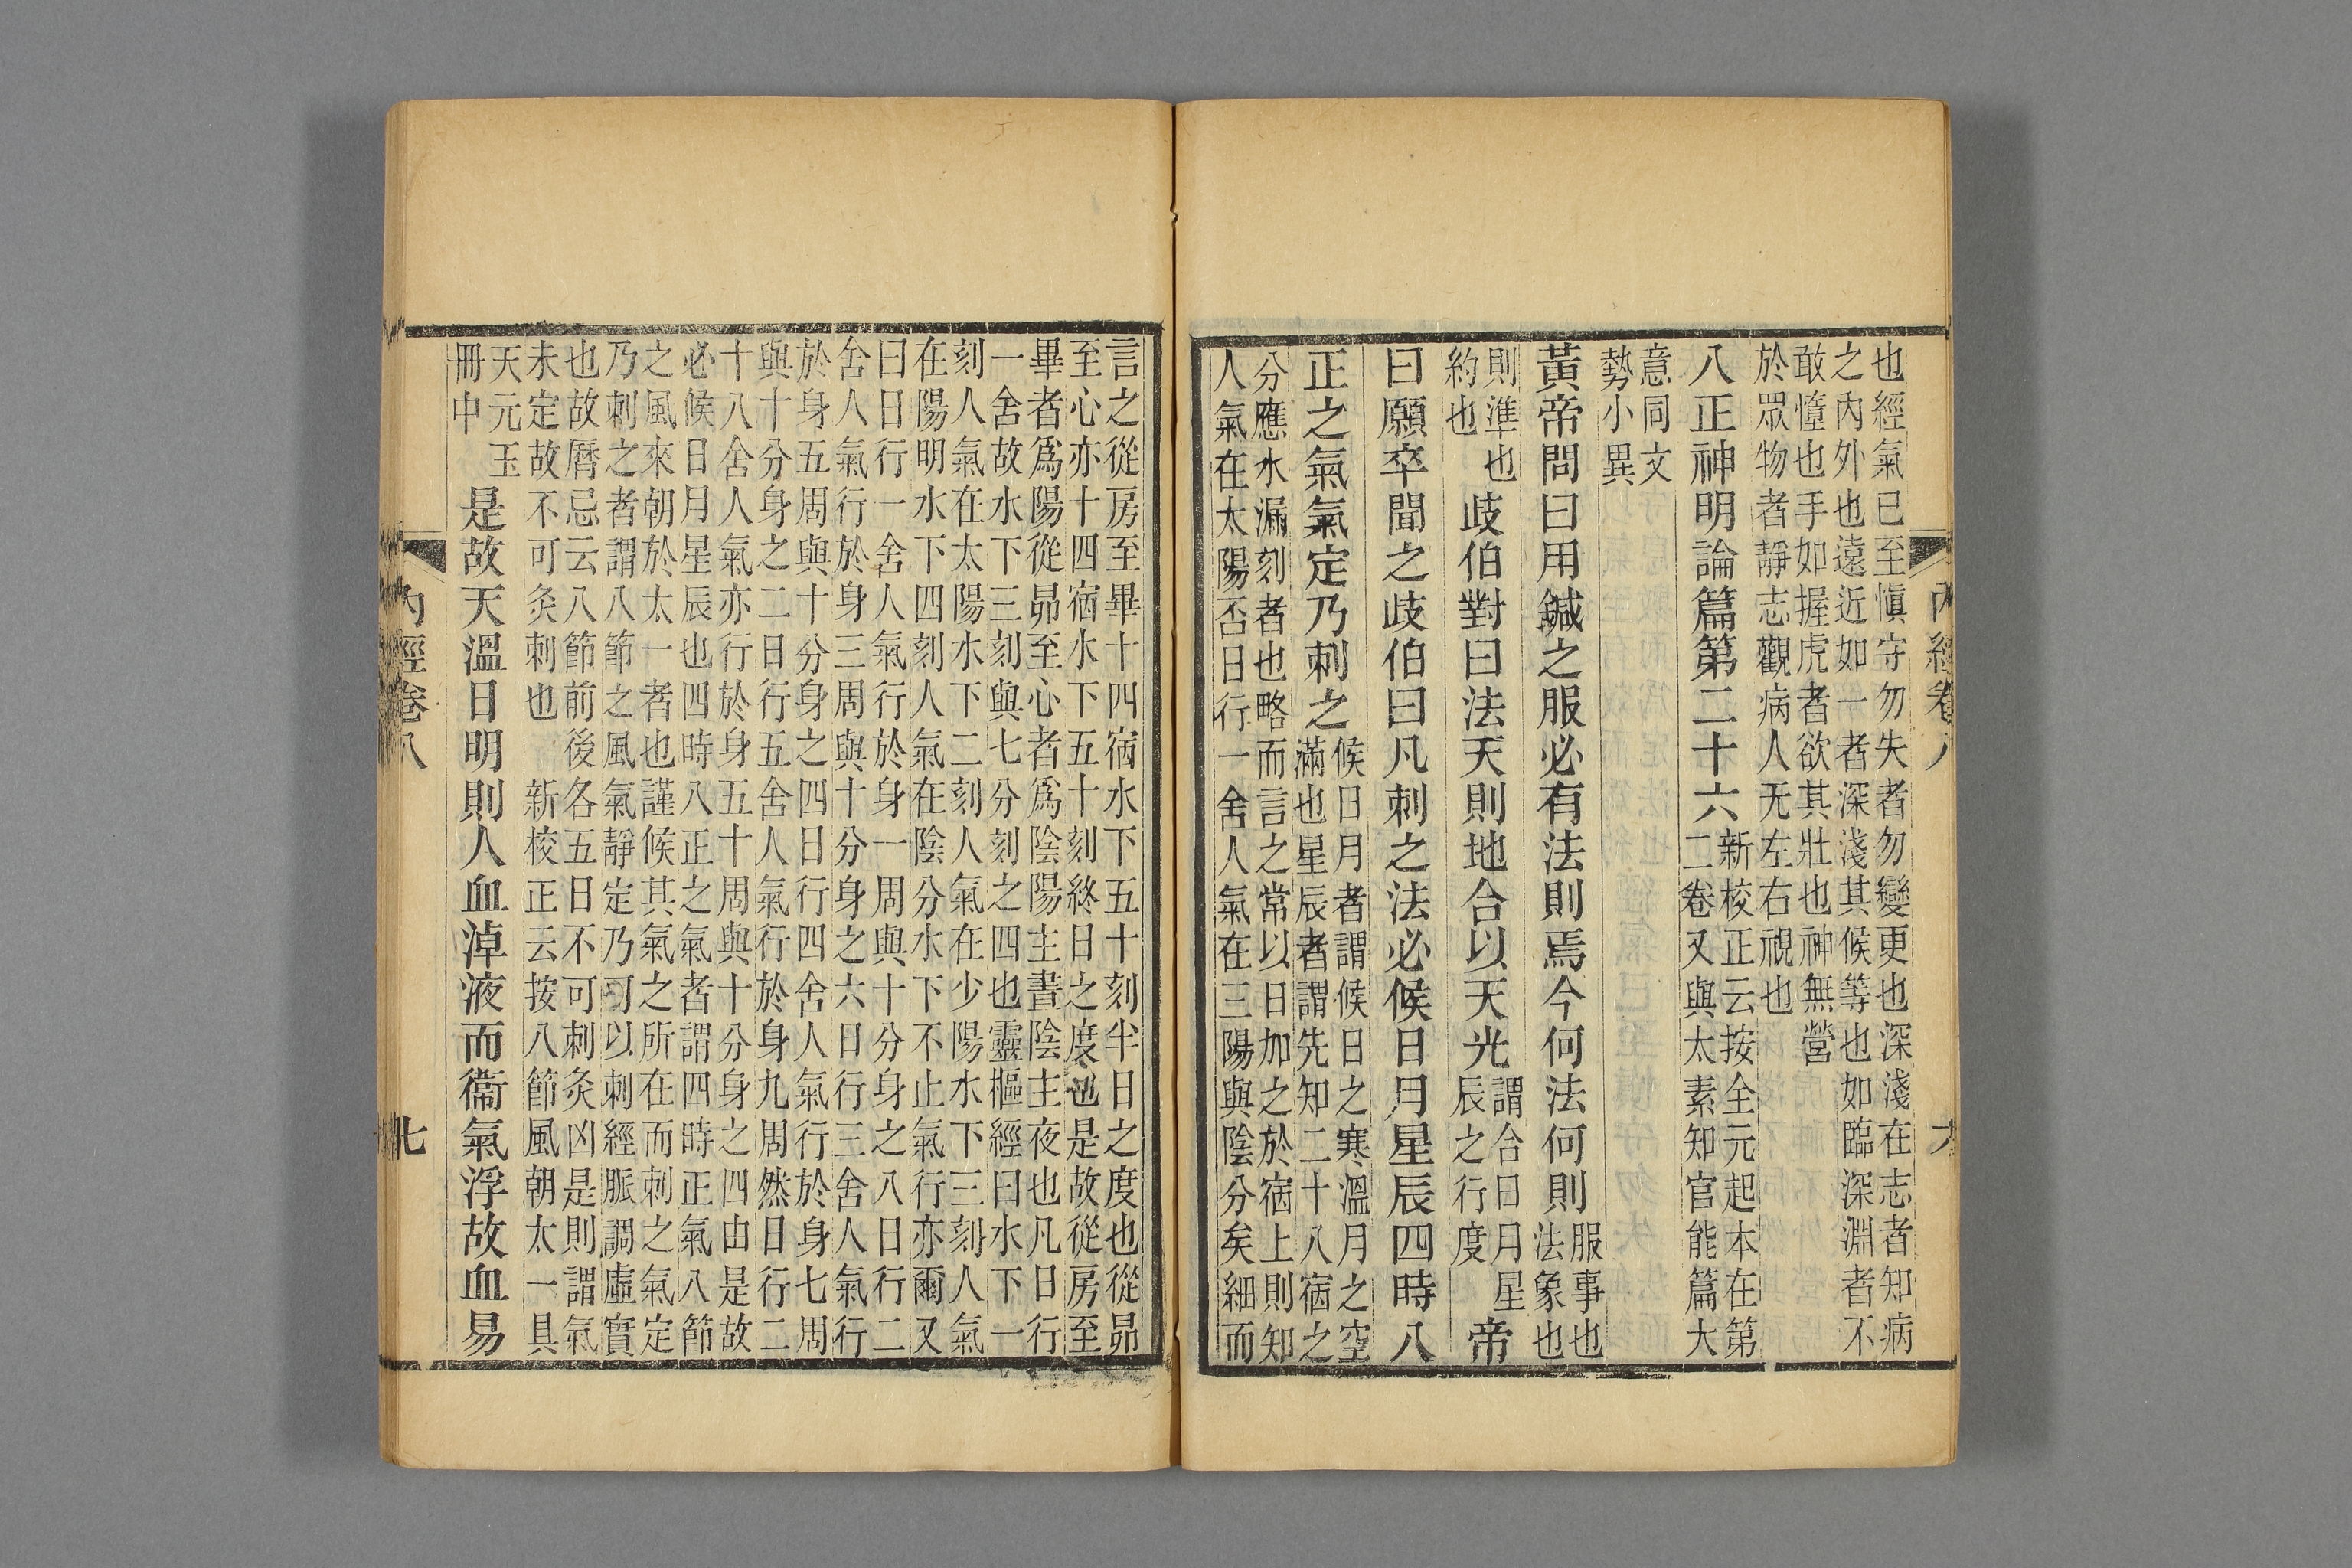 內經卷八
六
也經氣已至愼守勿失者勿變更也深淺在志者知病
之內外也遠近如一者深淺其候等也如臨深淵者不
敢憻也手如握虎者欲其壯也神無營
於眾物者靜志觀病人无左右視也
八正神明論篇第二十六
新校正云按全元起本在第
二卷又與太素知官能篇大
意同文
勢小異
黃帝問曰用鍼之服必有法則焉今何法何則
服事也
法象也
則準也
約也
歧伯對曰法天則地合以天光
謂合日月星
辰之行度
帝
曰願卒聞之歧伯曰凡刺之法必候日月星辰四時八
正之氣氣定乃刺之
候日月者謂候日之寒溫月之空
滿也星辰者謂先知二十八宿之
分應水漏刻者也略而言之常以日加之於宿上則知
人氣在太陽否日行一舍人氣在三陽與陰分矣細而
言之從房至畢十四宿水下五十刻半日之度也從昴
至心亦十四宿水下五十刻終日之度也是故從房至
畢者爲陽從昴至心者爲陰陽主晝陰主夜也凡日行
一舍故水下三刻與七分刻之四也靈樞經曰水下一
刻人氣在太陽水下二刻人氣在少陽水下三刻人氣
在陽明水下四刻人氣在陰分水下不止氣行亦爾又
曰日行一舍人氣行於身一周與十分身之八日行二
舍人氣行於身三周與十分身之六日行三舍人氣行
於身五周與十分身之四日行四舍人氣行於身七周
與十分身之二日行五舍人氣行於身九周然日行二
十八舍人氣亦行於身五十周與十分身之四由是故
必候日月星辰也四時八正之氣者謂四時正氣八節
之風來朝於太一者也謹候其氣之所在而刺之氣定
乃刺之者謂八節之風氣靜定乃可以刺經脈調虛實
也故曆忌云八節前後各五日不可刺灸凶是則謂氣
未定故不可灸刺也 新校正云按八節風朝太一具
天元玉
冊中
是故天溫日明則人血淖液而衞氣浮故血易
內經卷八
七